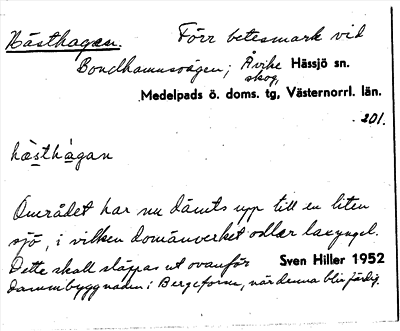 Hästhagen. Förr betesmark vid
Bondhamnsvägen; Åvike Hässjö sn.
skog,
Medelpads ö. doms. tg, Västernorrl. län.
201.
hästhàgan
Området har nu dämts upp till en liten
sjö, i vilken domänverket odlar laxyngel.
Dette skall släppas ut ovanför Sven Hiller 1952
dammbyggnaden i Bergeforsen, när denna blir färdig.